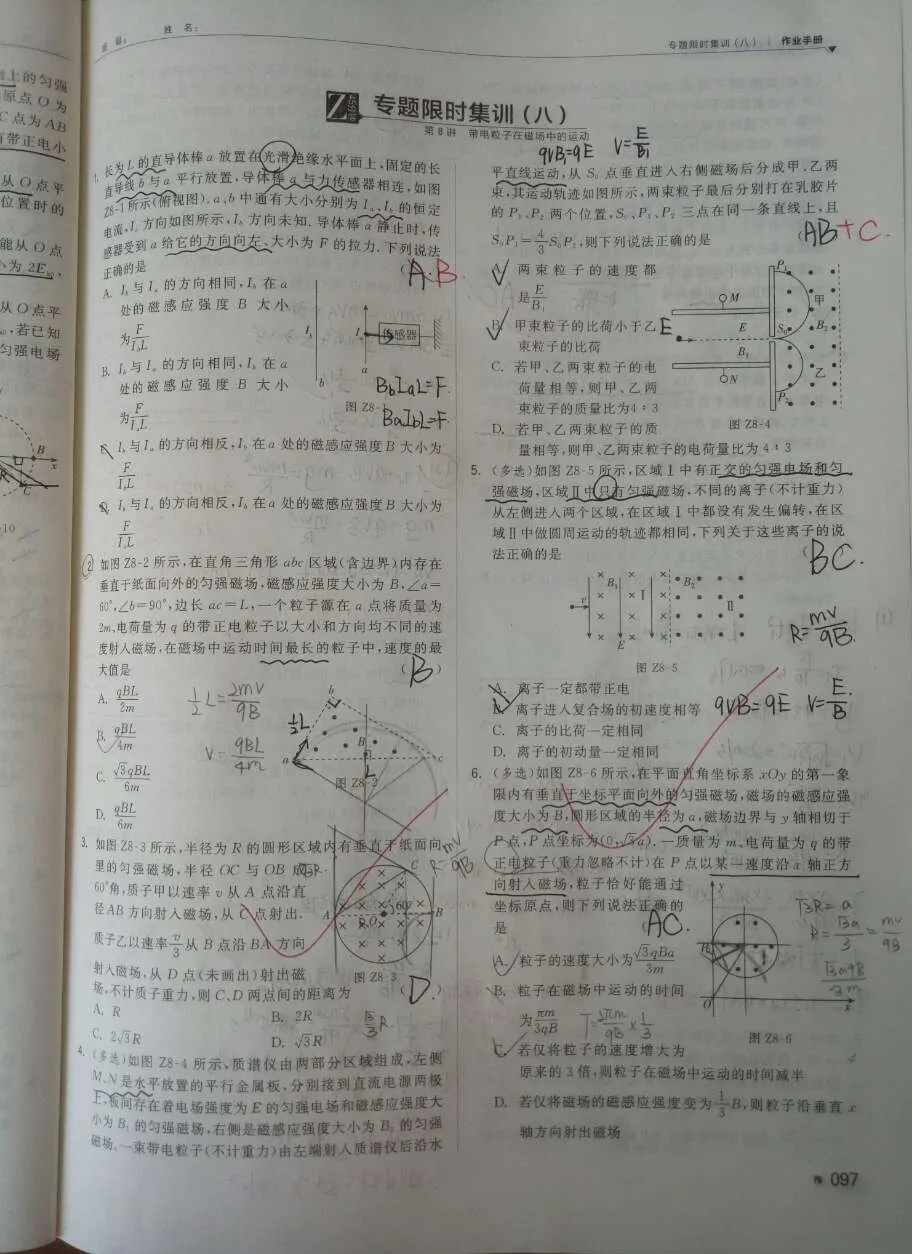 上的匀强
原点 O 为
C 点为 AB
有带正电小
从 O 点平
位置时的
能从 O 点
小为 2E
从 O 点平
若已知
匀强电场
班级: 姓名:
专题限时集训(八) | 作业手册
专题限时集训(八)
第 8 讲 带电粒子在磁场中的运动
qVB₁=qE V=E/B₁
1. 长为 L 的直导体棒 a 放置在光滑绝缘水平面上,固定的长
直导线 b 与 a 平行放置,导体棒 a 与力传感器相连,如图
Z8-1 所示(俯视图).a、b 中通有大小分别为 Iₐ、I_b 的恒定
电流,Iₐ 方向如图所示,I_b 方向未知.导体棒 a 静止时,传
感器受到 a 给它的方向向左、大小为 F 的拉力.下列说法
正确的是 ( A.B
A. I_b 与 Iₐ 的方向相同,I_b 在 a
处的磁感应强度 B 大小
为 F/(I_bL)
B. I_b 与 Iₐ 的方向相同,I_b 在 a
处的磁感应强度 B 大小
为 F/(IₐL)
I_b Iₐ 传感器
b a
图 Z8-
B_bIₐL=F
BₐI_bL=F.
C. I_b 与 Iₐ 的方向相反,I_b 在 a 处的磁感应强度 B 大小为
F/(I_bL)
D. I_b 与 Iₐ 的方向相反,I_b 在 a 处的磁感应强度 B 大小为
F/(IₐL)
2. 如图 Z8-2 所示,在直角三角形 abc 区域(含边界)内存在
垂直于纸面向外的匀强磁场,磁感应强度大小为 B,∠a=
60°,∠b=90°,边长 ac=L,一个粒子源在 a 点将质量为
2m、电荷量为 q 的带正电粒子以大小和方向均不同的速
度射入磁场,在磁场中运动时间最长的粒子中,速度的最
大值是 ( B )
A. qBL/2m
B. qBL/4m
C. √3qBL/6m
D. qBL/6m
½L=2mV/qB
V=qBL/4m
½L b B a L c
图 Z8-2
3. 如图 Z8-3 所示,半径为 R 的圆形区域内有垂直于纸面向
里的匀强磁场,半径 OC 与 OB 成
60°角,质子甲以速率 v 从 A 点沿直
径 AB 方向射入磁场,从 C 点射出.
质子乙以速率 v/3 从 B 点沿 BA 方向
射入磁场,从 D 点(未画出)射出磁
场,不计质子重力,则 C、D 两点间的距离为 ( D )
R=mv/qB
A O B C 60°
图 Z8-3
A. R B. 2R
C. 2√3R D. √3R
√3/3 R.
4. (多选)如图 Z8-4 所示,质谱仪由两部分区域组成,左侧
M、N 是水平放置的平行金属板,分别接到直流电源两极
上,板间存在着电场强度为 E 的匀强电场和磁感应强度大
小为 B₁ 的匀强磁场,右侧是磁感应强度大小为 B₂ 的匀强
磁场.一束带电粒子(不计重力)由左端射入质谱仪后沿水
平直线运动,从 S₀ 点垂直进入右侧磁场后分成甲、乙两
束,其运动轨迹如图所示,两束粒子最后分别打在乳胶片
的 P₁、P₂ 两个位置,S₀、P₁、P₂ 三点在同一条直线上,且
S₀P₁=4/3 S₀P₂,则下列说法正确的是 ( AB+C.
A. 两束粒子的速度都
是 E/B₁
B. 甲束粒子的比荷小于乙
束粒子的比荷
C. 若甲、乙两束粒子的电
荷量相等,则甲、乙两
束粒子的质量比为 4∶3
D. 若甲、乙两束粒子的质
量相等,则甲、乙两束粒子的电荷量比为 4∶3
P₁ M 甲 E E S₀ B₂ B₁ 乙 N P₂
图 Z8-4
5. (多选)如图 Z8-5 所示,区域Ⅰ中有正交的匀强电场和匀
强磁场,区域Ⅱ中只有匀强磁场,不同的离子(不计重力)
从左侧进入两个区域,在区域Ⅰ中都没有发生偏转,在区
域Ⅱ中做圆周运动的轨迹都相同,下列关于这些离子的说
法正确的是 ( BC.
B₁ Ⅰ B₂ v Ⅱ E
R=mv/qB
图 Z8-5
A. 离子一定都带正电
B. 离子进入复合场的初速度相等 qVB=qE V=E/B
C. 离子的比荷一定相同
D. 离子的初动量一定相同
6. (多选)如图 Z8-6 所示,在平面直角坐标系 xOy 的第一象
限内有垂直于坐标平面向外的匀强磁场,磁场的磁感应强
度大小为 B,圆形区域的半径为 a,磁场边界与 y 轴相切于
P 点,P 点坐标为(0,√3a).一质量为 m、电荷量为 q 的带
正电粒子(重力忽略不计)在 P 点以某一速度沿 x 轴正方
向射入磁场,粒子恰好能通过
坐标原点,则下列说法正确的
是 ( AC. )
A. 粒子的速度大小为 √3qBa/3m
B. 粒子在磁场中运动的时间
为 πm/3qB T=2πm/qB × 1/3
C. 若仅将粒子的速度增大为
原来的 3 倍,则粒子在磁场中运动的时间减半
D. 若仅将磁场的磁感应强度变为 1/3 B,则粒子沿垂直 x
轴方向射出磁场
y O x
图 Z8-6
√3R=a
R=√3a/3=mv/qB
097